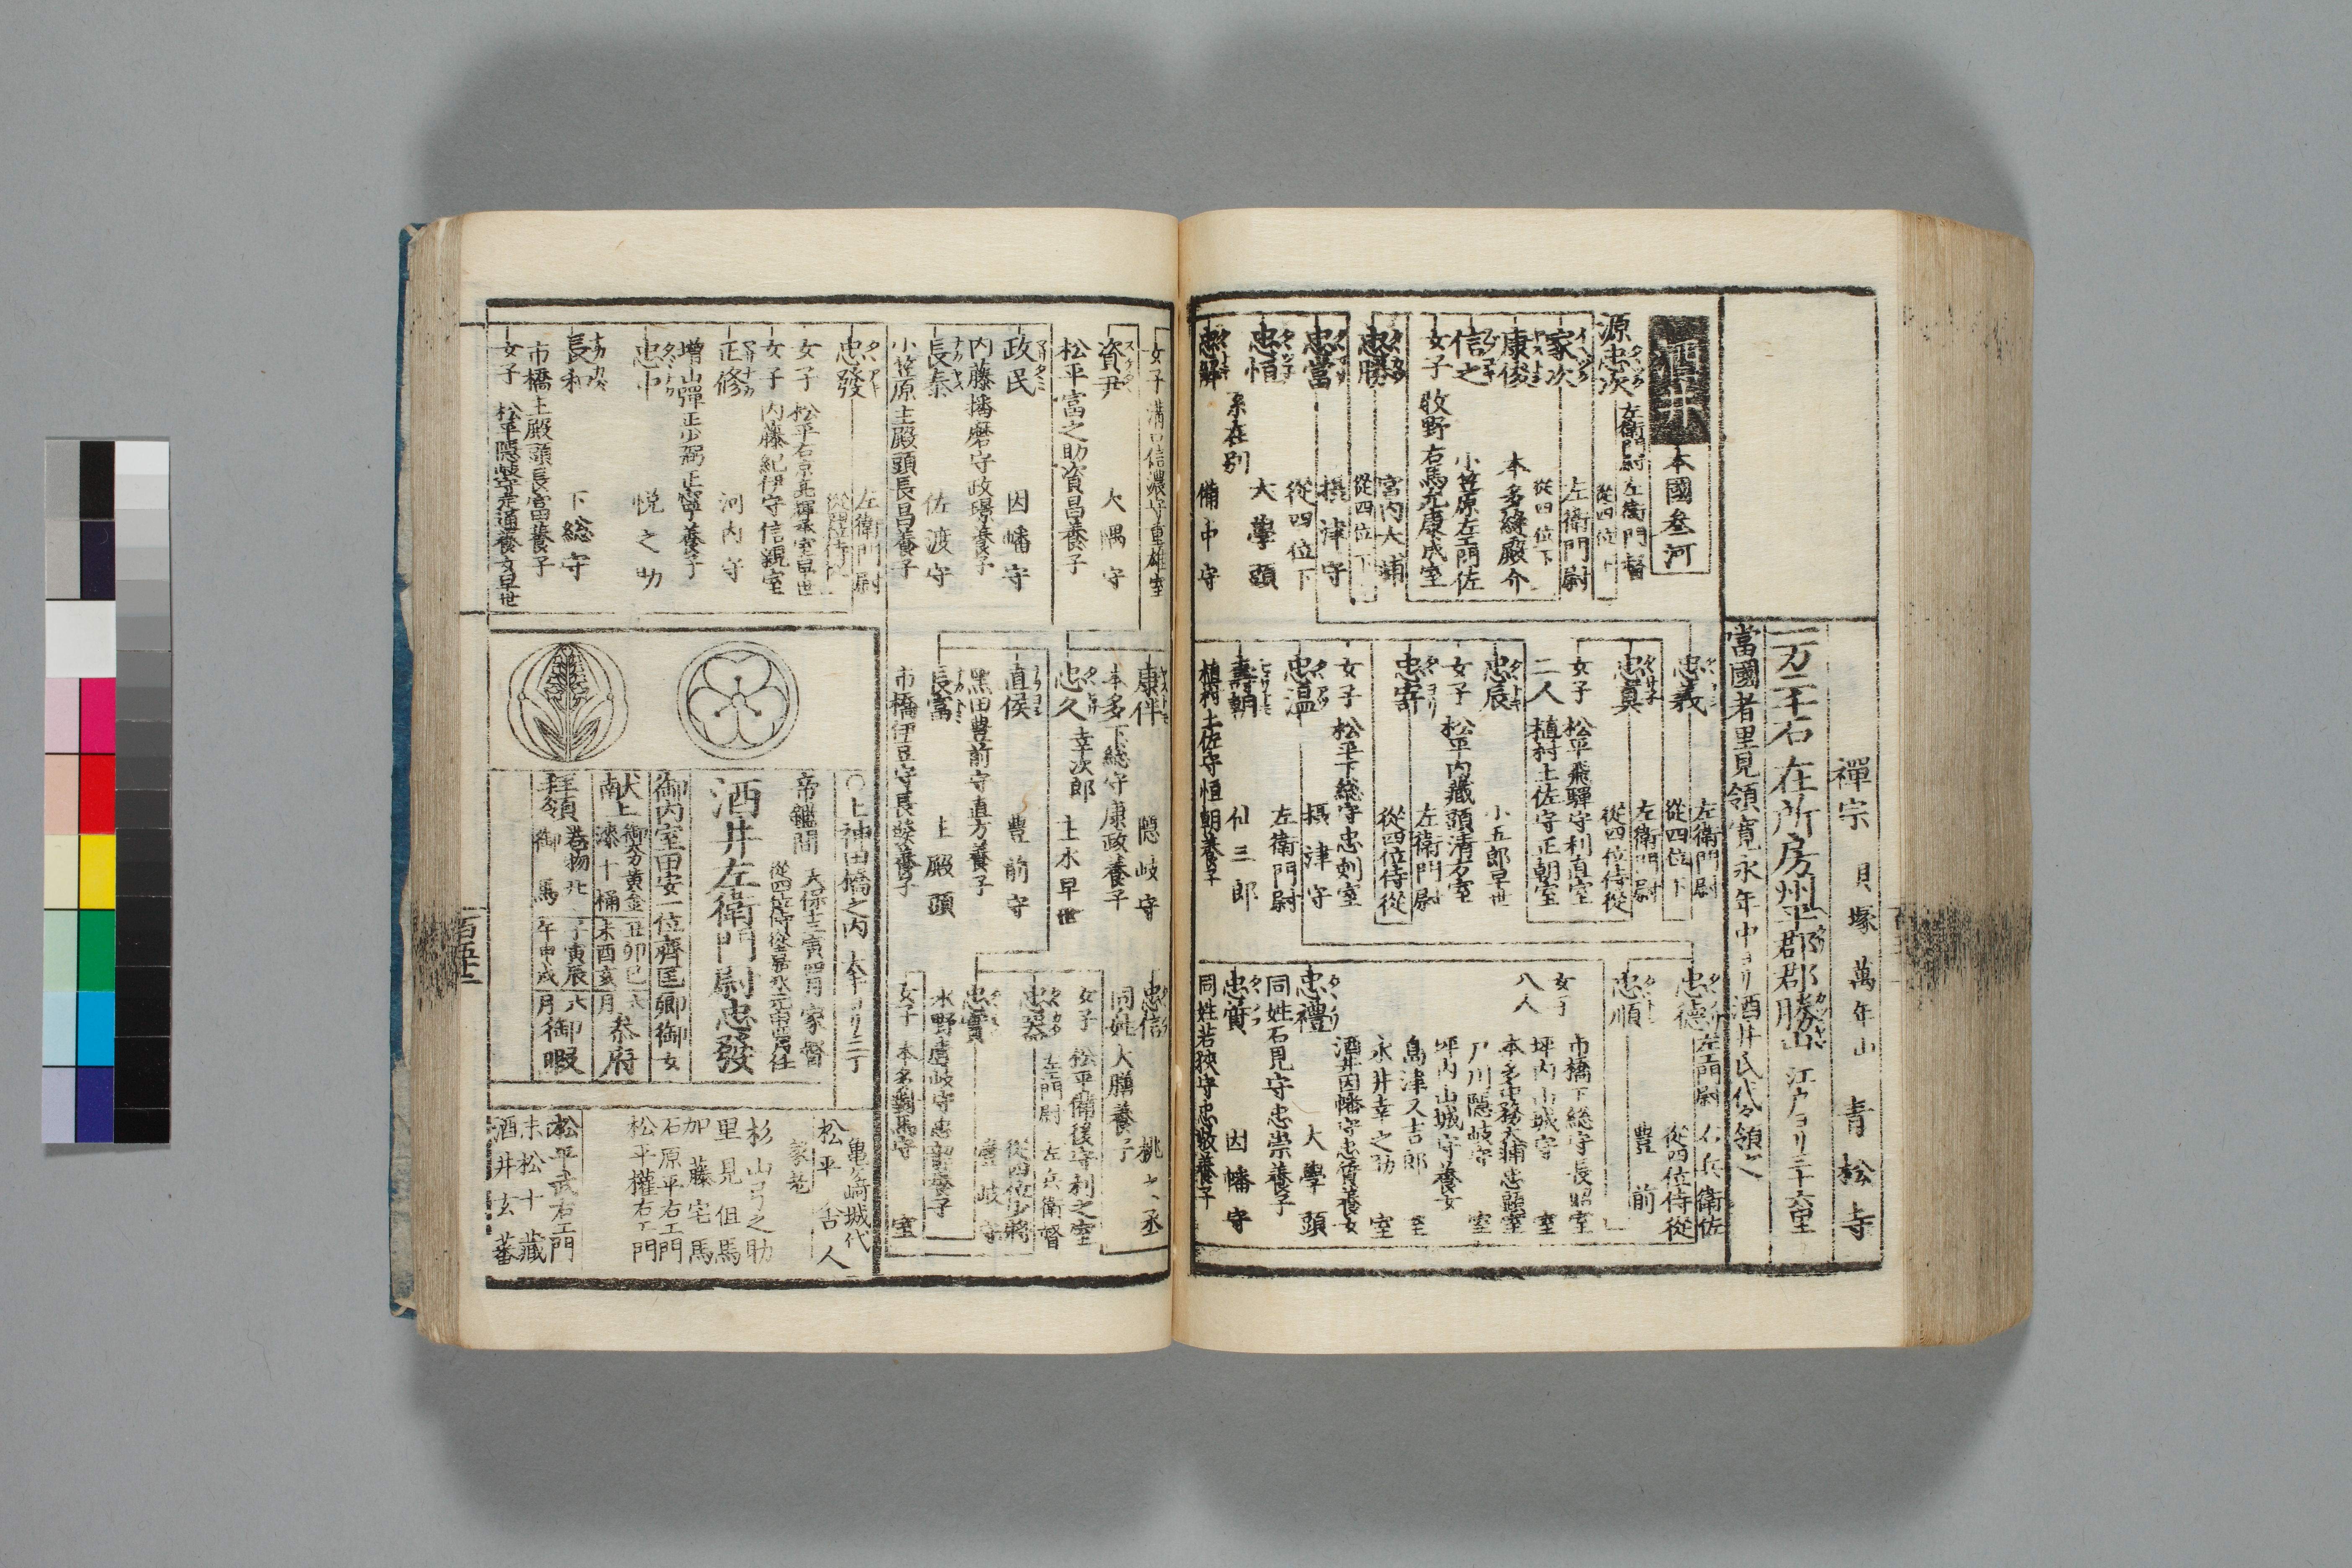 禪宗 貝塚 萬年山 青松寺
一万二千石 在所房州平郡郡勝山 江戸ヨリ三十六里
當國者里見領寛永年中ヨリ酒井氏代々領之
酒井 本國参河
源忠次 左衛門尉 左衛門督
從四位下
家次 左衛門尉
從四位下
康俊 本多縫殿介
信之 小笠原左エ門佐
女子 牧野右馬允康成室
忠勝 宮内大輔
從四位下
忠當 摂津守
從四位下
忠恒 大學頭
系在別
忠解 備中守
忠義 左衛門尉
從四位下
忠眞 左衛門尉
從四位侍從
女子 松平飛騨守利直室
二人 植村土佐守正朝室
忠辰 小五郎早世
女子 松平内藏頭清方室
忠寄 左衛門尉
從四位侍從
女子 松平下総守忠刻室
忠温 摂津守
左衛門尉
壽朝 仙三郎
植村土佐守恒朝養子
忠德 左エ門尉 左兵衛佐
從四位侍從
忠順 豊前
女子 市橋下総守長昭室
八人 坪内山城守 室
本多中務大輔忠顕室
戸川隠岐守 室
坪内山城守養女
島津又吉郎 室
永井幸之助 室
酒井因幡守忠質養女
忠禮 大學頭
同姓石見守忠崇養子
忠質 因幡守
同姓若狭守忠敬養子
女子 溝口信濃守重雄室
資尹 大隅守
松平富之助資昌養子
政民 因幡守
内藤播磨守政璟養子
長泰 佐渡守
小笠原主殿頭長昌養子
忠發 左衛門尉
從四位侍從
女子 松平右京亮輝承室早世
女子 内藤紀伊守信親室
正修 河内守
増山弾正少弼正寧養子
忠中 悦之助
長和 下総守
市橋主殿頭長富養子
女子 松平隠岐守定通養女早世
康伴 隠岐守
本多下総守康政養子
忠久 幸次郎 主水早世
直侯 豊前守
黒田豊前守直方養子
長富 主殿頭
市橋伊豆守長發養子
忠信 桃之丞
同姓大膳養子
女子 松平備後守利之室
忠器 左エ門尉 左兵衛督
從四位少將
忠實 壹岐守
水野壹岐守忠韶養子
女子 本多對馬守 室
○上神田橋之内 大手ヨリ三丁
帝鑑間 天保十三寅四月家督
從四位侍從
酒井左衛門尉忠發
御内室田安一位齊匡卿御女
献上 御太刀黄金 丑卯巳 六
漆十桶 未酉亥 月 参府
拝領 巻物 子寅辰 六
御馬 午申戌 月 御暇
亀ヶ崎城代
松平舎人
家老
杉山弓之助
里見但馬
加藤宅馬
石原平右エ門
松平權右エ門
松平武右エ門
末松十藏
酒井玄蕃